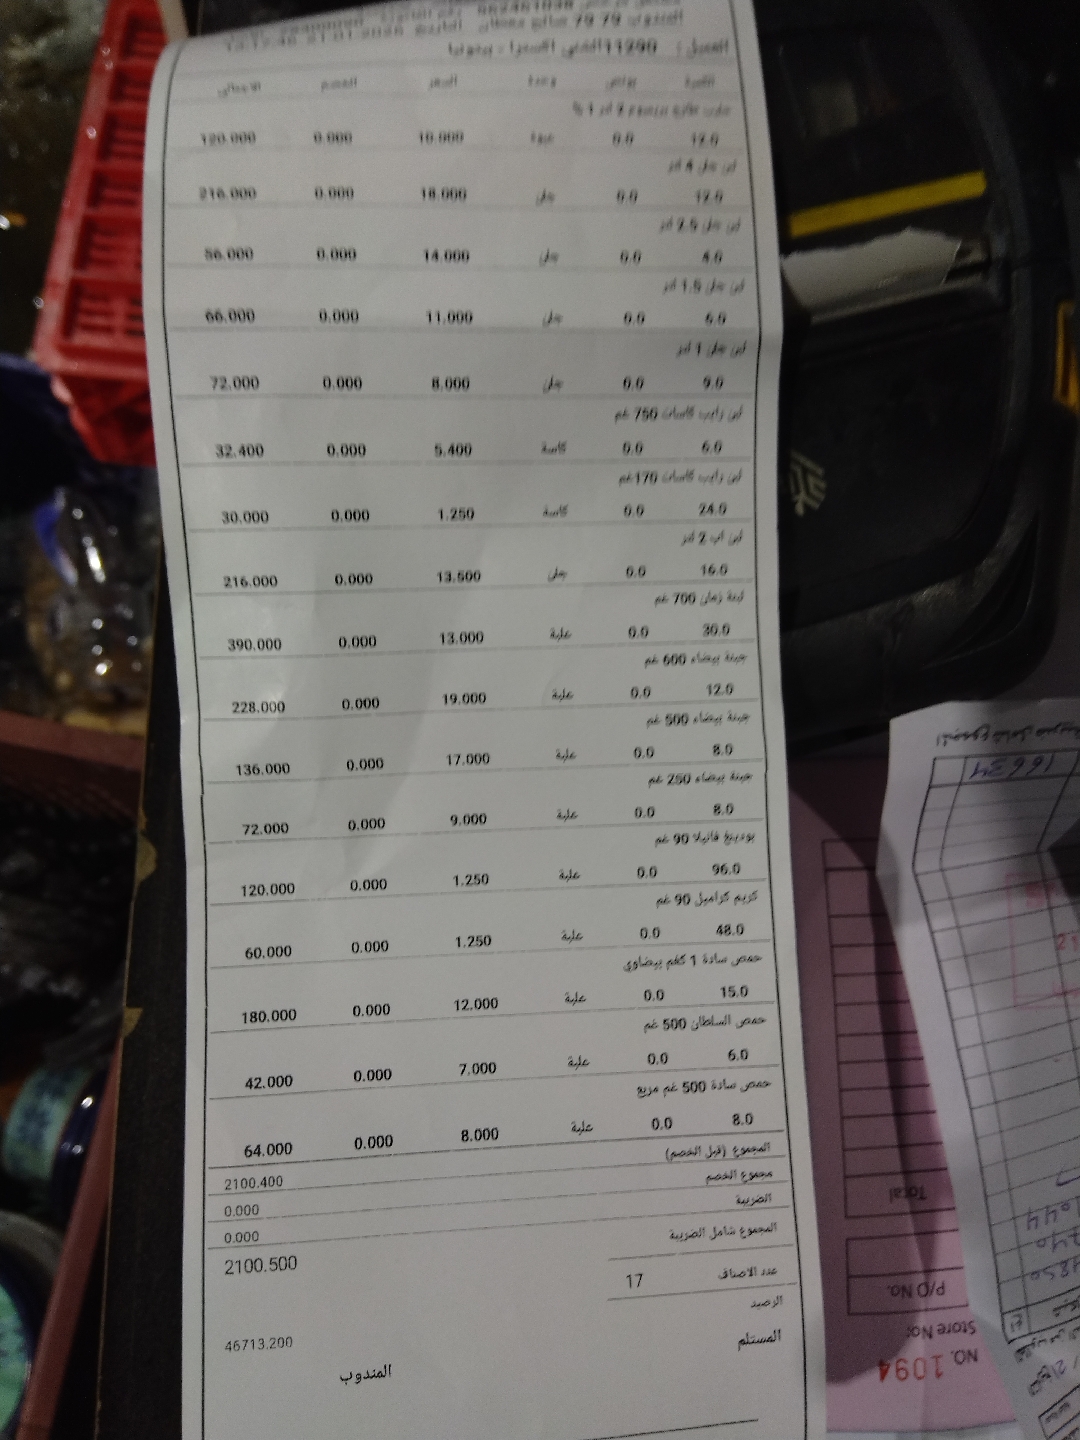 المندوب 79 79 صالح
العميل : 11290
الكمية بونص وحدة السعر الخصم الاجمالي
12.0 0.0 عبوة 10.000 0.000 120.000
لبن جلن 4 لتر
12.0 0.0 جلن 18.000 0.000 216.000
لبن جلن 2.5 لتر
4.0 0.0 جلن 14.000 0.000 56.000
لبن جلن 1.5 لتر
6.0 0.0 جلن 11.000 0.000 66.000
لبن جلن 1 لتر
9.0 0.0 جلن 8.000 0.000 72.000
لبن رايب كاسات 750 غم
6.0 0.0 كاسة 5.400 0.000 32.400
لبن رايب كاسات 170غم
24.0 0.0 كاسة 1.250 0.000 30.000
لبن اب 2 لتر
16.0 0.0 جلن 13.500 0.000 216.000
لبنة زمان 700 غم
30.0 0.0 علبة 13.000 0.000 390.000
جبنة بيضاء 600 غم
12.0 0.0 علبة 19.000 0.000 228.000
جبنة بيضاء 500 غم
8.0 0.0 علبة 17.000 0.000 136.000
جبنة بيضاء 250 غم
8.0 0.0 علبة 9.000 0.000 72.000
بودينغ فانيلا 90 غم
96.0 0.0 علبة 1.250 0.000 120.000
كريم كراميل 90 غم
48.0 0.0 علبة 1.250 0.000 60.000
حمص سادة 1 كغم بيضاوي
15.0 0.0 علبة 12.000 0.000 180.000
حمص السلطان 500 غم
6.0 0.0 علبة 7.000 0.000 42.000
حمص سادة 500 غم مربع
8.0 0.0 علبة 8.000 0.000 64.000
المجموع (قبل الخصم) 2100.400
مجموع الخصم 0.000
الضريبة 0.000
المجموع شامل الضريبة 2100.500
عدد الاصناف 17
الرصيد 46713.200
المستلم
المندوب
Total
P/O No.
Store No:
NO. 1094